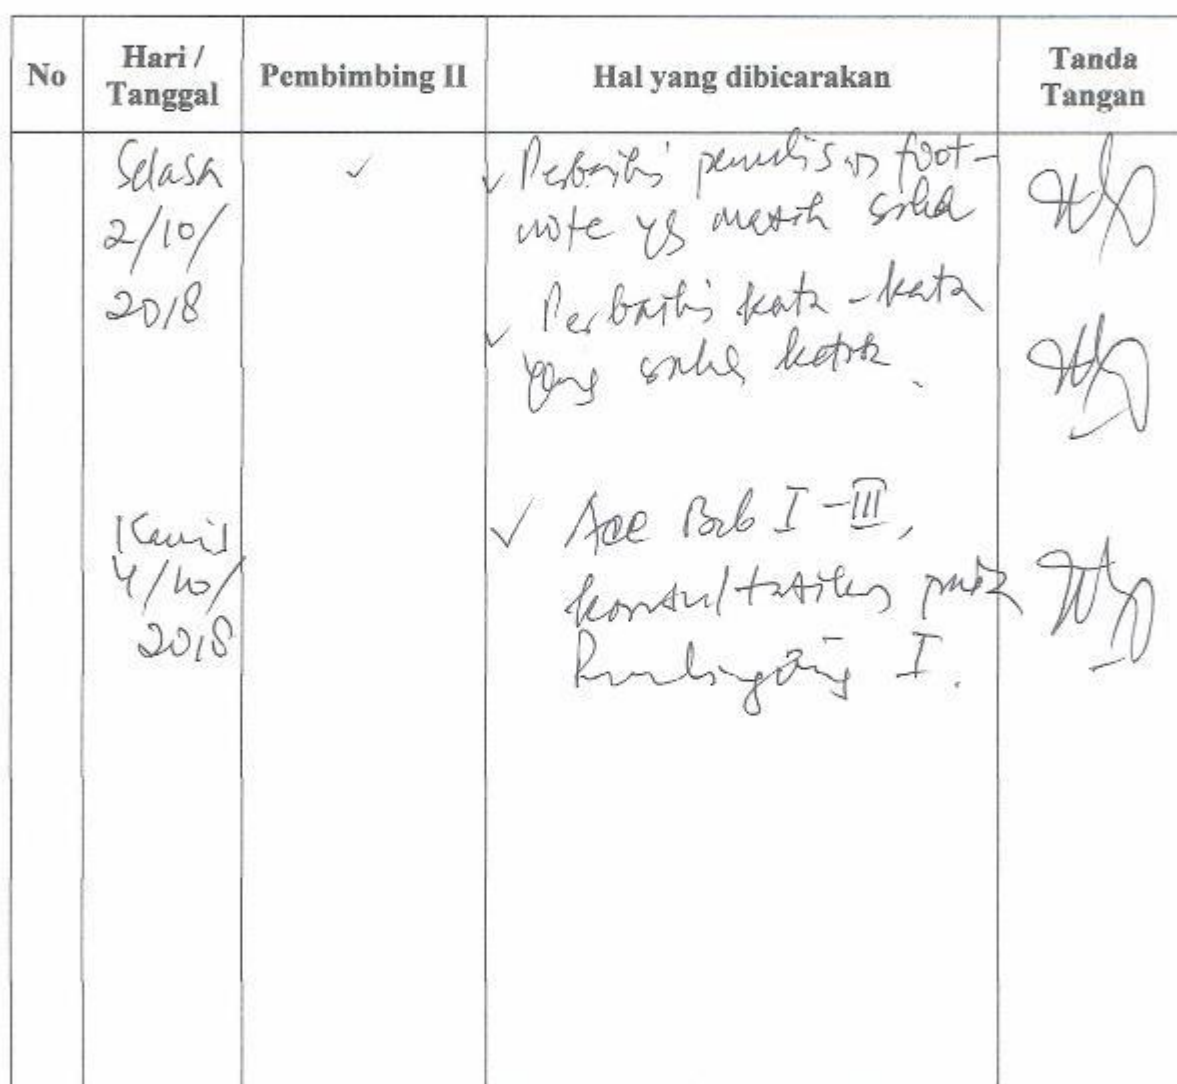 No
Hari /
Tanggal
Pembimbing II
Hal yang dibicarakan
Tanda
Tangan
Selasa
2/10/
2018
✓
✓ Perbaiki penulisan foot-
note yg masih salah
✓ Perbaiki kata-kata
yang salah ketik.
Kamis
4/10/
2018
✓ Acc Bab I-III,
konsultasikan pada
Pembimbing I.